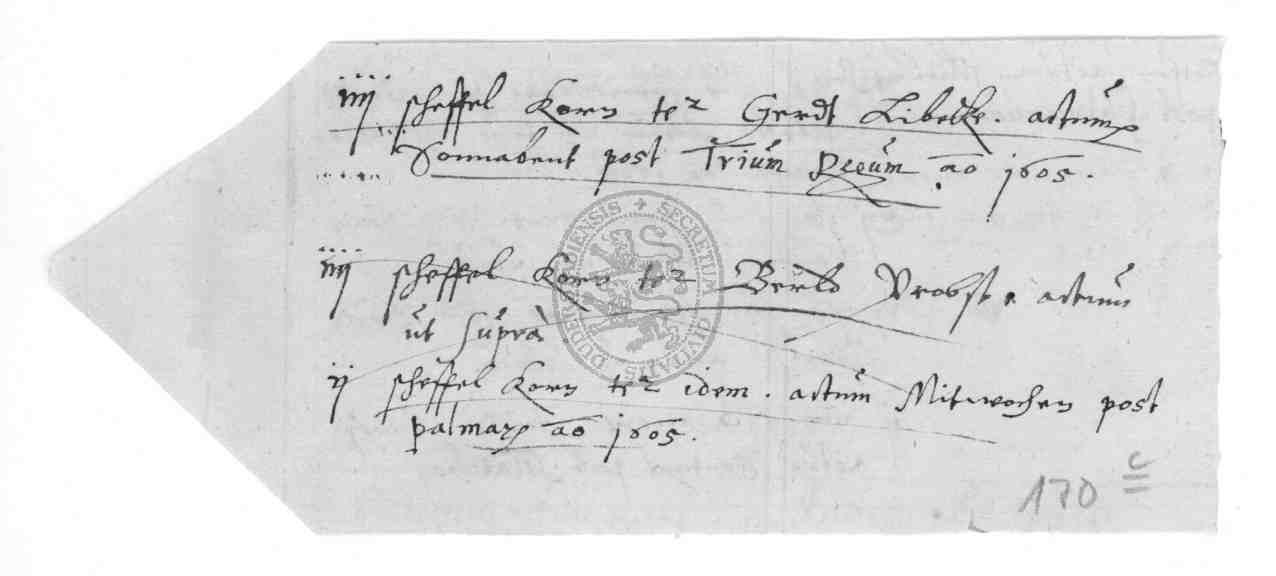 iiij scheffel Korn ter Gerdt Libeske. actum
Sonnabent post Trium Regum ao 1605.
iiij scheffel Korn ter Probst. actum
ut supra
ij scheffel Korn ter idem. actum Mitwochen post
palmarum ao 1605.
170 c
SECRETUM CIVITATIS DUDERSTADIENSIS